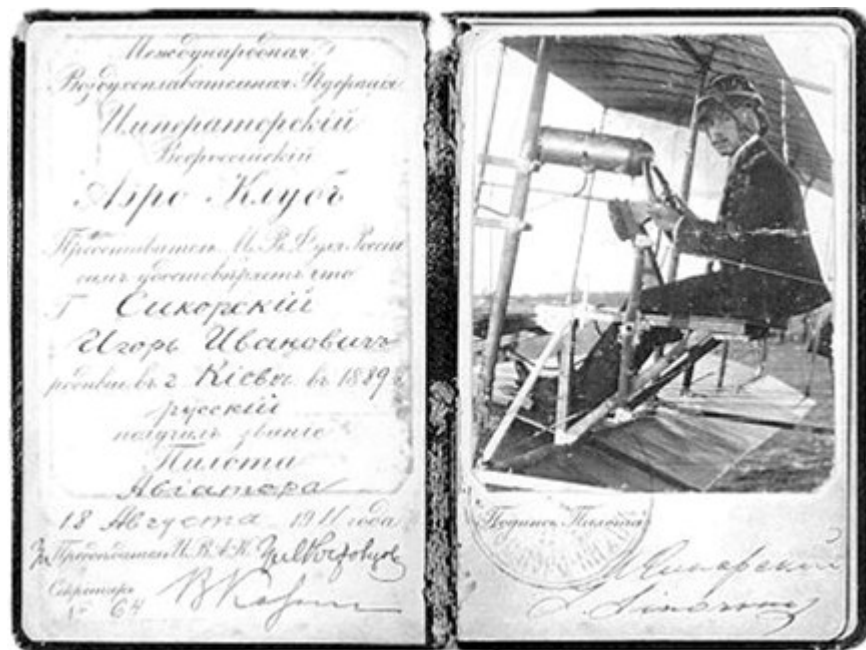 Международная
Воздухоплавательная Федерація
Императорскій
Всероссійскій
Аэро-Клубъ
Представитель И. В. Ф. для Россіи
симъ удостовѣряетъ что
Г Сикорскій
Игорь Ивановичъ
родивш. въ г. Кіевѣ въ 1889 г.
русскій
получилъ званіе
Пилота
Авіатора
18 Августа 1911 года
Председатель И. В. А. К.
Секретарь
№ 64
Подпись Пилота
И Сикорскій
I. Sikorsky